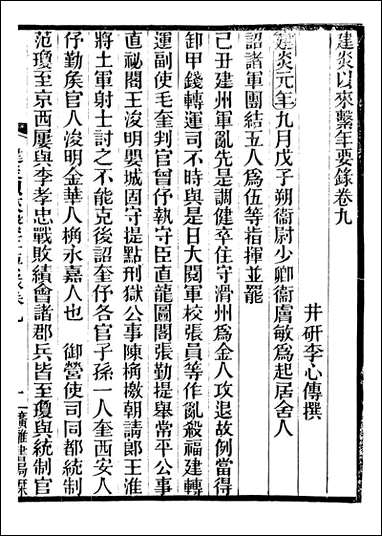 建炎以來繫年要錄卷九
井研李心傳撰
建炎元年九月戊子朔衞尉少卿衞膚敏爲起居舍人
詔諸軍團結五人爲伍等指揮並罷
己丑建州軍亂先是調健卒住守滑州爲金人攻退故例當得
卸甲錢轉運司不時與是日大閱軍校張員等作亂殺福建轉
運副使毛奎判官曾伃執守臣直龍圖閣張勤提舉常平公事
直祕閣王浚明嬰城固守提點刑獄公事陳桷檄朝請郎王淮
將土軍射士討之不能克後詔奎伃各官子孫一人奎西安人
伃勤矦官人浚明金華人桷永嘉人也　御營使司同都統制
范瓊至京西屢與李孝忠戰敗績會諸郡兵皆至瓊與統制官
建炎以來繫年要錄卷九
一
廣雅書局栞